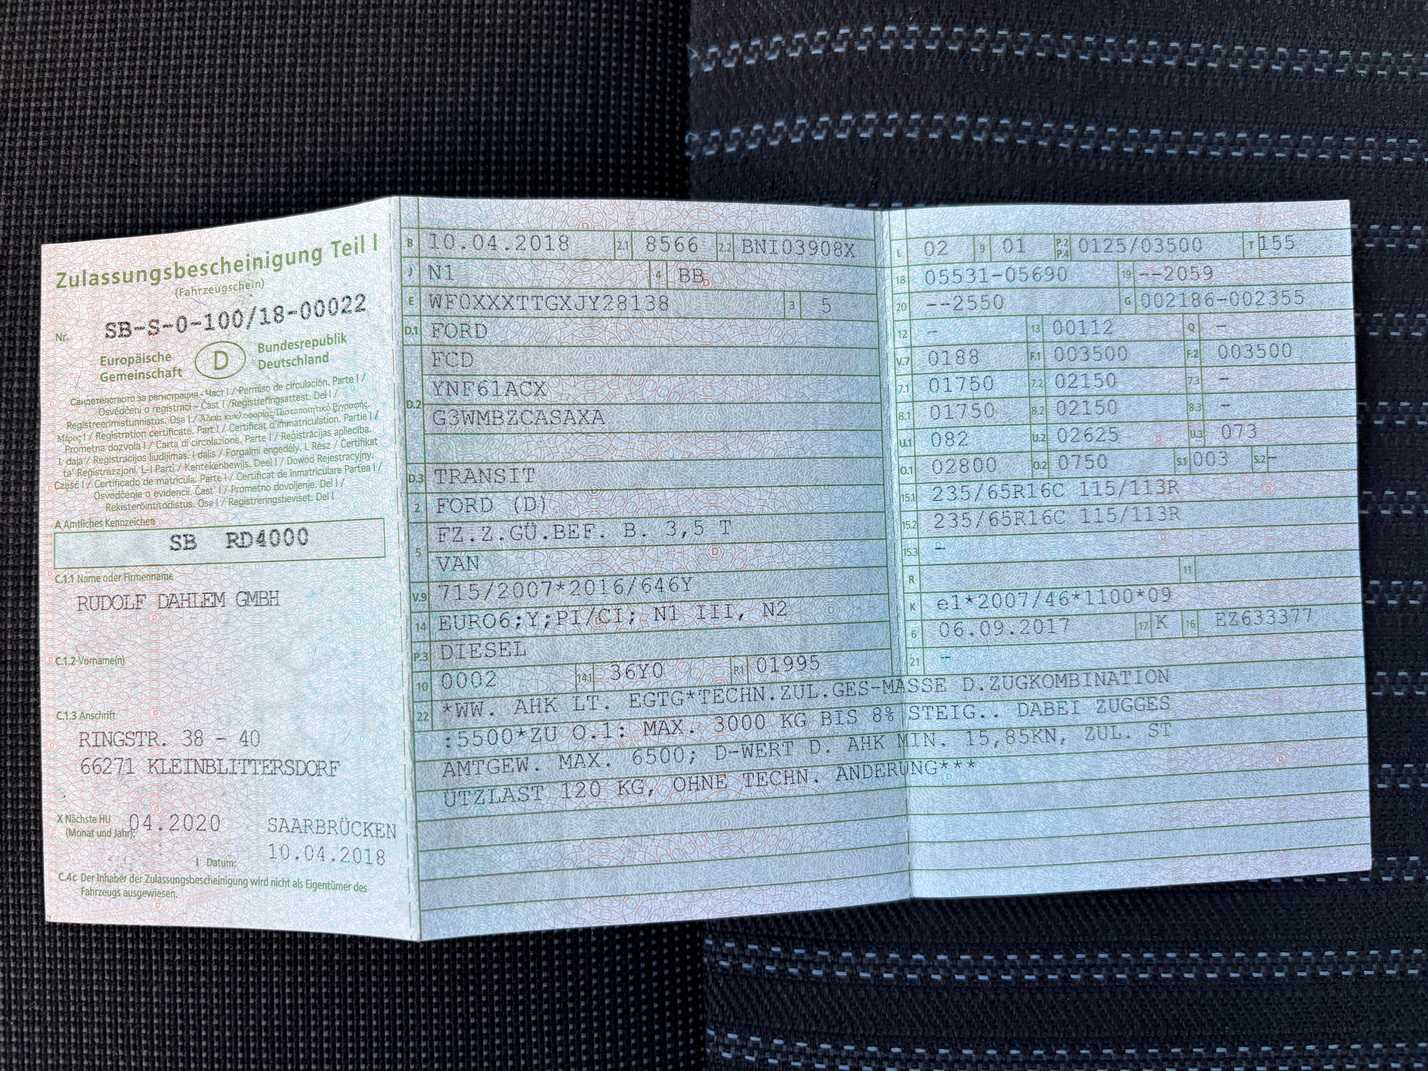 Zulassungsbescheinigung Teil I
(Fahrzeugschein)
Nr. SB-S-0-100/18-00022
Europäische Gemeinschaft
D
Bundesrepublik Deutschland
Свидетелството за регистрация - Част I / Permiso de circulación. Parte I /
Osvědčení o registraci - Část I / Registreringsattest. Del I /
Registreerimistunnistus. Osa I / Άδεια κυκλοφορίας. Πιστοποιητικό Εγγραφής.
Μέρος I / Registration certificate. Part I / Certificat d'immatriculation. Partie I /
Prometna dozvola I / Carta di circolazione. Parte I / Reģistrācijas apliecība.
I. daļa / Registracijos liudijimas. I dalis / Forgalmi engedély. I. Rész / Ċertifikat
ta' Reġistrazzjoni. L-I Parti / Kentekenbewijs. Deel I / Dowód Rejestracyjny.
Część I / Certificado de matrícula. Parte I / Certificat de înmatriculare Partea I /
Osvedčenie o evidencii. Časť I / Prometno dovoljenje. Del I /
Rekisteröintitodistus. Osa I / Registreringsbeviset. Del I
A Amtliches Kennzeichen
SB RD4000
C.1.1 Name oder Firmenname
RUDOLF DAHLEM GMBH
C.1.2 Vorname(n)
C.1.3 Anschrift
RINGSTR. 38 - 40
66271 KLEINBLITTERSDORF
X Nächste HU (Monat und Jahr): 04.2020
SAARBRÜCKEN
I Datum: 10.04.2018
C.4c Der Inhaber der Zulassungsbescheinigung wird nicht als Eigentümer des
Fahrzeugs ausgewiesen.
B 10.04.2018 2.1 8566 2.2 BNI03908X
J N1 4 BB
E WF0XXXTTGXJY28138 3 5
D.1 FORD
D.2 FCD
YNF61ACX
G3WMBZCASAXA
D.3 TRANSIT
2 FORD (D)
5 FZ.Z.GÜ.BEF. B. 3,5 T
VAN
V.9 715/2007*2016/646Y
14 EURO6;Y;PI/CI; N1 III, N2
P.3 DIESEL
10 0002 14.1 36Y0 P.1 01995
L 02 9 01 P.2 P.4 0125/03500 T 155
18 05531-05690 19 --2059
20 --2550 G 002186-002355
12 - 13 00112 Q -
V.7 0188 F.1 003500 F.2 003500
7.1 01750 7.2 02150 7.3 -
8.1 01750 8.2 02150 8.3 -
U.1 082 U.2 02625 U.3 073
O.1 02800 O.2 0750 S.1 003 S.2 -
15.1 235/65R16C 115/113R
15.2 235/65R16C 115/113R
15.3 -
R 11
K e1*2007/46*1100*09
6 06.09.2017 17 K 16 EZ633377
21 -
22 *WW. AHK LT. EGTG*TECHN.ZUL.GES-MASSE D.ZUGKOMBINATION
:5500*ZU O.1: MAX. 3000 KG BIS 8% STEIG.. DABEI ZUGGES
AMTGEW. MAX. 6500; D-WERT D. AHK MIN. 15,85KN, ZUL. ST
ÜTZLAST 120 KG, OHNE TECHN. ÄNDERUNG***